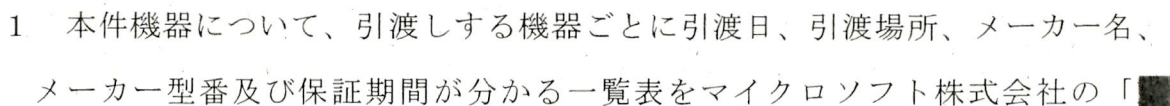 1 本件機器について、引渡しする機器ごとに引渡日、引渡場所、メーカー名、
メーカー型番及び保証期間が分かる一覧表をマイクロソフト株式会社の「